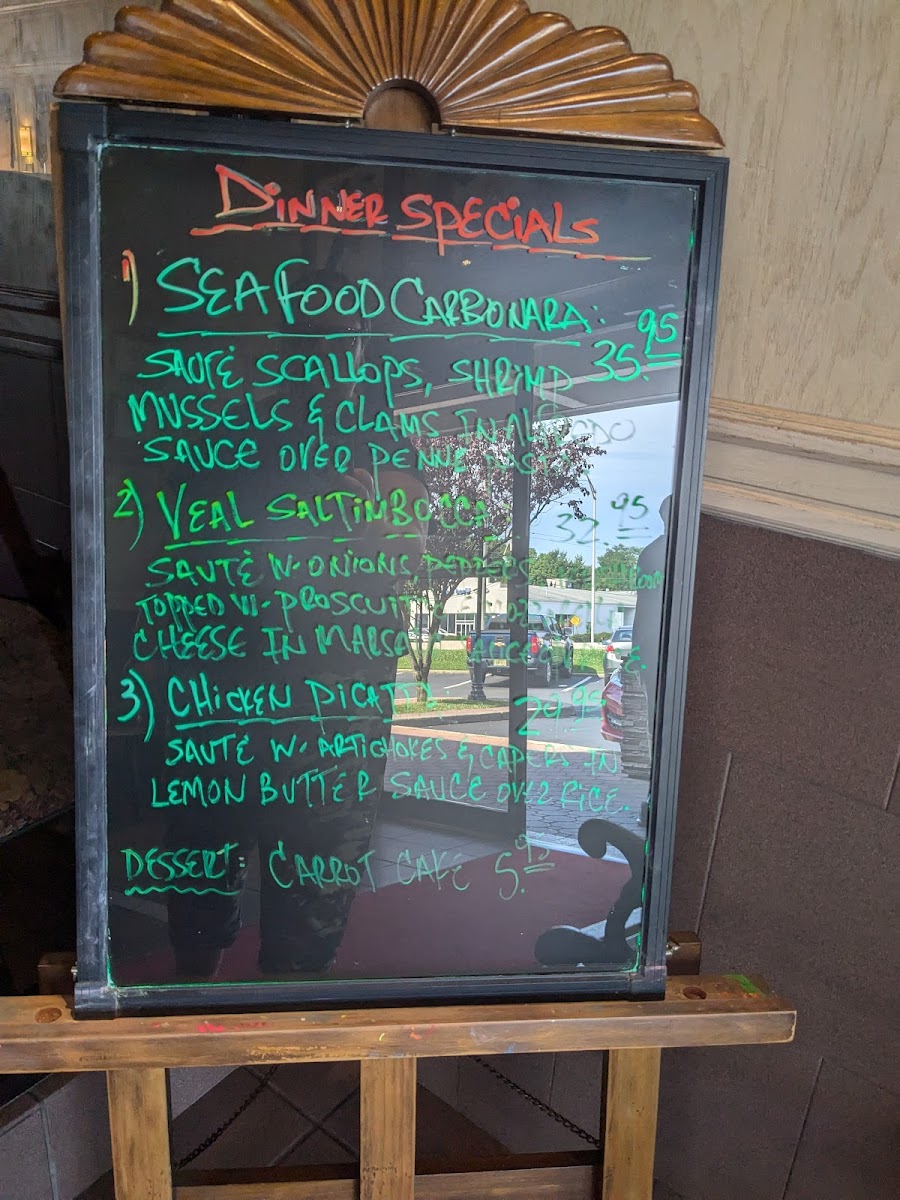 DINNER SPECIALS
1) SEAFOOD CARBONARA: 35.95
SAUTÉ SCALLOPS, SHRIMP
MUSSELS & CLAMS IN ALFREDO
SAUCE OVER PENNE PASTA
2) VEAL SALTIMBOCCA 32.95
SAUTÉ W- ONIONS PEPPERS
TOPPED W- PROSCUITTO
CHEESE IN MARSALA SAUCE
3) CHICKEN PICATTA 29.95
SAUTÉ W- ARTICHOKES & CAPERS IN
LEMON BUTTER SAUCE OVER RICE.
DESSERT: CARROT CAKE 5.95